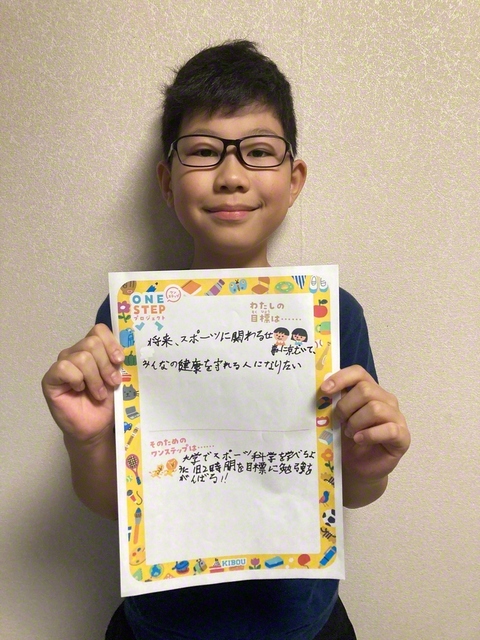 ONE
STEP
プロジェクト
わたしの
目標は……
将来、スポーツに関わる仕
事に就いて、
みんなの健康を守れる人になりたい
そのための
ワンステップは……
大学でスポーツ科学を学べるよ
うに1日2時間を目標に勉強を
がんばる!!
KIBOU